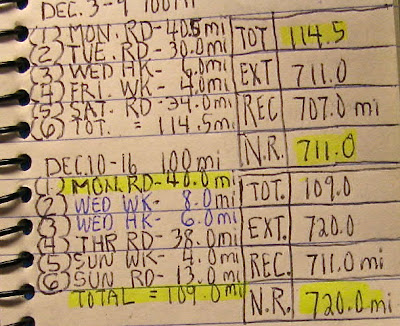 DEC. 3-9 100mi
(1) MON. RD- 40.5mi
(2) TUE. RD- 30.0mi
(3) WED HK- 6.0mi
(4) FRI. WK- 4.0mi
(5) SAT. RD- 34.0mi
(6) TOT. = 114.5mi
TOT 114.5
EXT 711.0
REC 707.0 mi
N.R. 711.0
DEC 10-16 100mi
(1) MON. RD- 40.0mi
(2) WED WK- 8.0mi
(3) WED HK- 6.0mi
(4) THR RD- 38.0mi
(5) SUN WK- 4.0mi
(6) SUN RD- 13.0mi
TOTAL = 109.0mi
TOT. 109.0
EXT. 720.0
REC. 711.0 mi
N.R. 720.0 mi